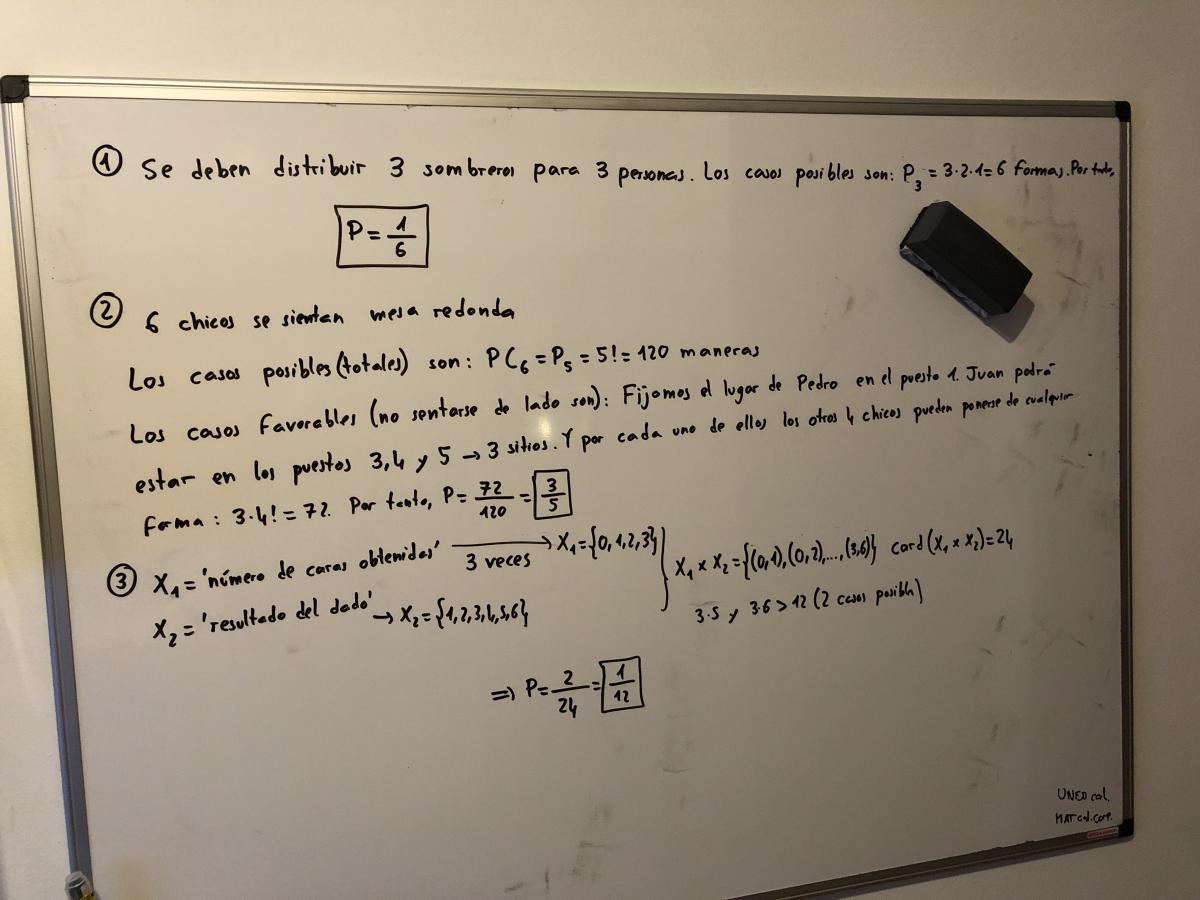 ① Se deben distribuir 3 sombreros para 3 personas. Los casos posibles son: P₃ = 3·2·1 = 6 formas. Por tanto,
P = 1/6
② 6 chicos se sientan mesa redonda
Los casos posibles (totales) son: PC₆ = P₅ = 5! = 120 maneras
Los casos favorables (no sentarse de lado son): Fijamos el lugar de Pedro en el puesto 1. Juan podrá
estar en los puestos 3, 4 y 5 → 3 sitios. Y por cada uno de ellos los otros 4 chicos pueden ponerse de cualquier
forma: 3·4! = 72. Por tanto, P = 72/120 = 3/5
③ X₁ = 'número de caras obtenidas' 3 veces → X₁ = {0,1,2,3} } X₁ × X₂ = {(0,1),(0,2),...,(3,6)} card(X₁ × X₂) = 24
X₂ = 'resultado del dado' → X₂ = {1,2,3,4,5,6} 3·5 y 3·6 > 12 (2 casos posibles)
⇒ P = 2/24 = 1/12
UNED cal.